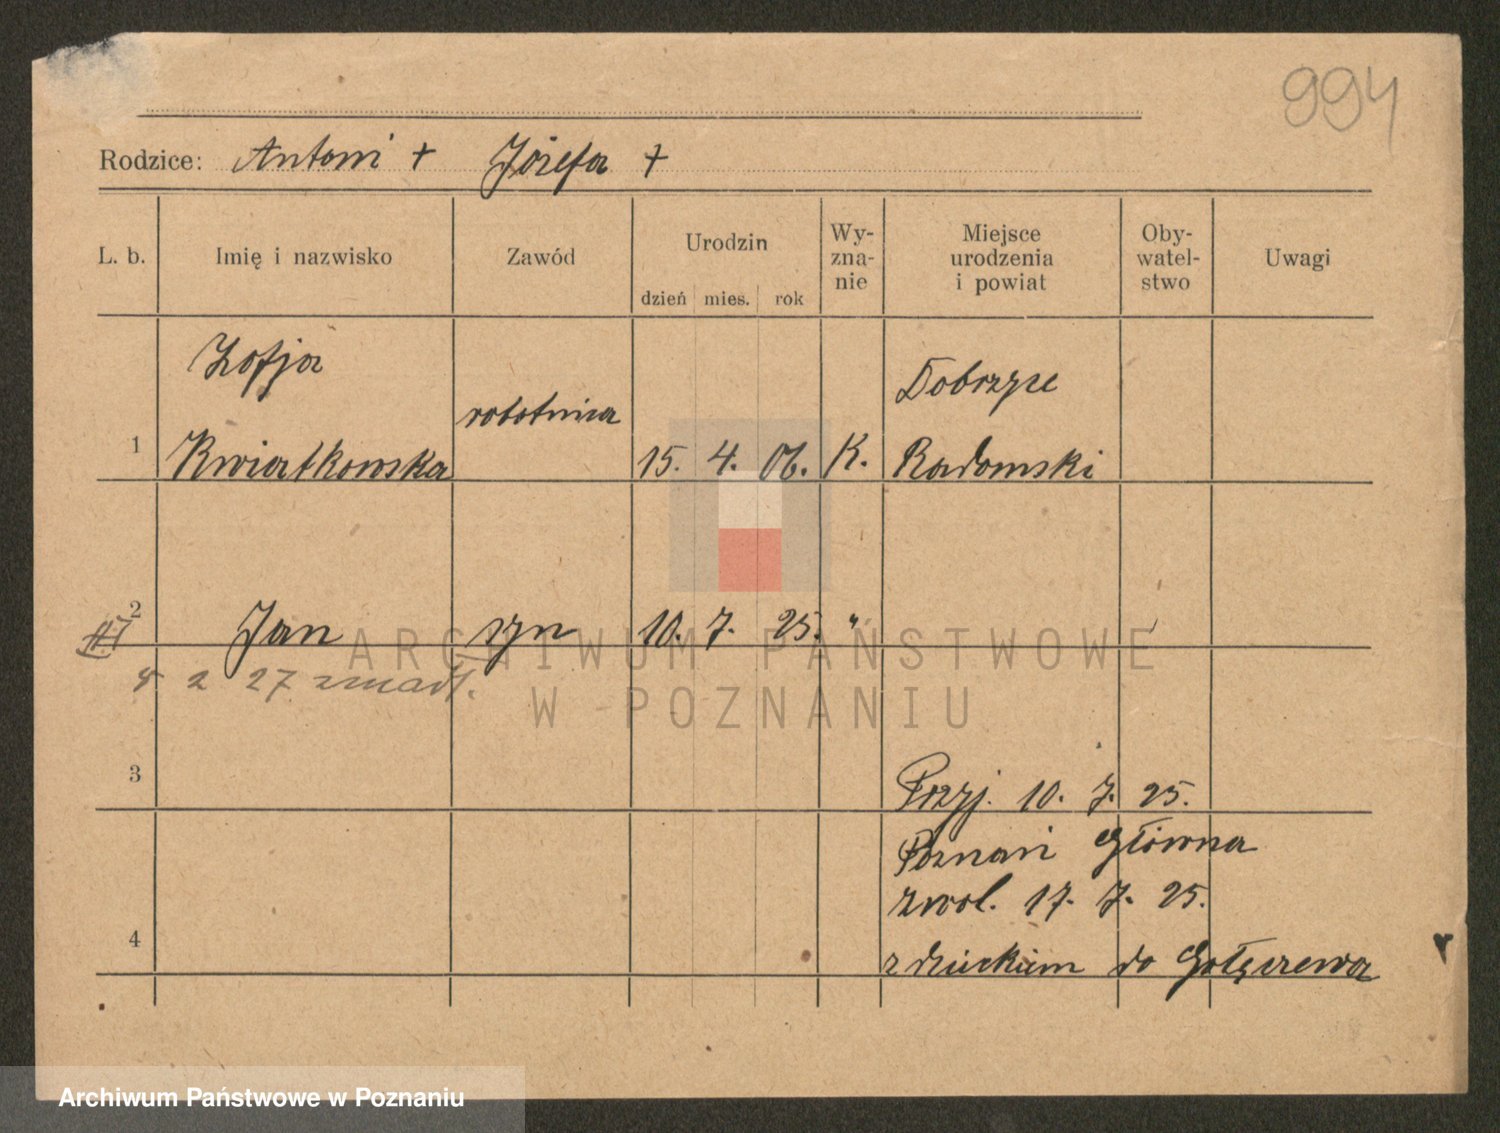 994
Rodzice: Antoni + Józefa +
L. b. Imię i nazwisko Zawód Urodzin dzień mies. rok Wy-zna-nie Miejsce urodzenia i powiat Oby-watel-stwo Uwagi
Zofja Dobrzyce
robotnica
1 Kwiatkowska 15. 4. 06. K. Radomski
2 Jan syn 10. 7. 25. "
8 2 27 zmarł.
3 Przyj. 10. 7. 25.
Poznań Główna
zwol. 17. 7. 25.
4 z dzieckiem do Gołęczewa
ARCHIWUM PAŃSTWOWE
W POZNANIU
Archiwum Państwowe w Poznaniu